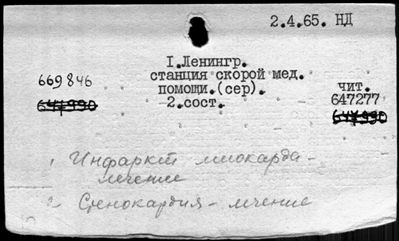 2.4.65. НД
I.Ленингр.
станция скорой мед.
помощи.(сер).
2.сост.
669846
чит.
647277
1 Инфаркт миокарда -
лечение
2 Стенокардия - лечение